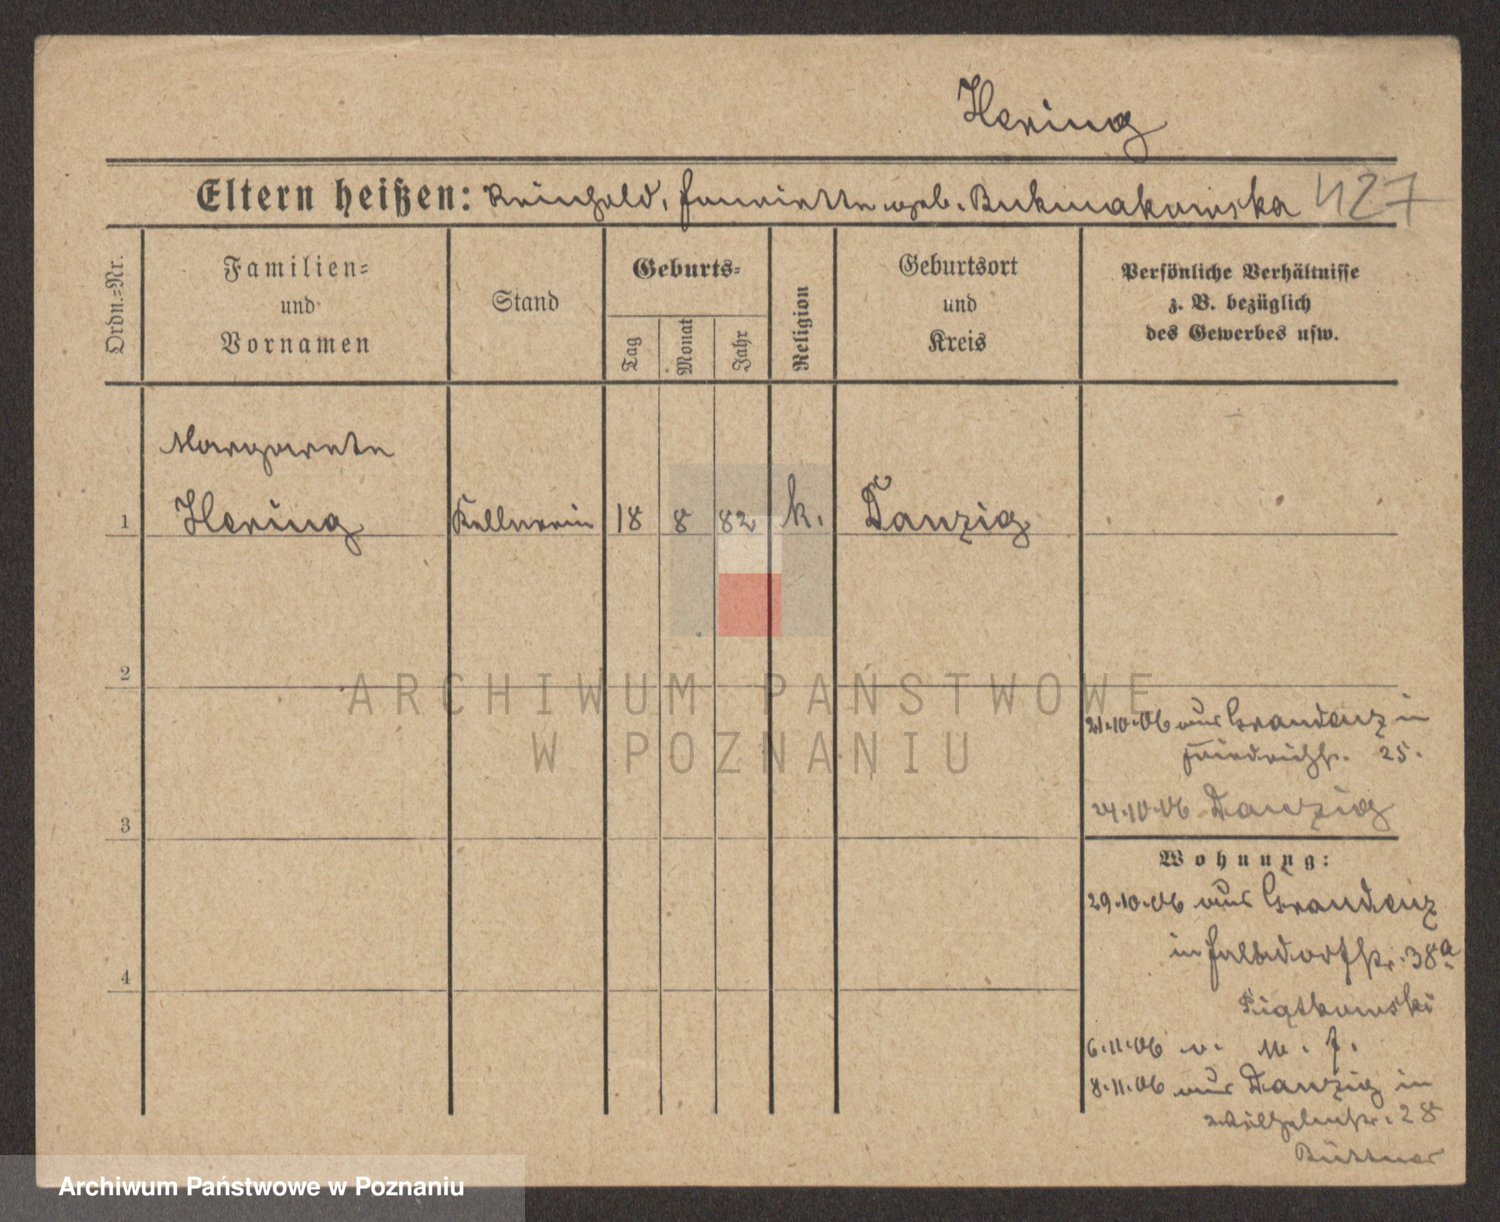 Hering
Eltern heißen: Reinhold, Henriette geb. Bukmakowska 427
Ordn.=Nr.
Familien=
und
Vornamen
Stand
Geburts=
Tag
Monat
Jahr
Religion
Geburtsort
und
Kreis
Persönliche Verhältnisse
z. B. bezüglich
des Gewerbes usw.
Margarete
1 Hering Kellnerin 18 8 82 k. Danzig
2
21.10.06 aus Graudenz in
Friedrichstr. 25.
3
24.10.06 Danzig
Wohnung:
29.10.06 aus Graudenz
in 38a
4
Piątkowski
6.11.06 v. 
8.11.06 aus Danzig in
Wilhelmstr. 28
Büttner
ARCHIWUM PAŃSTWOWE
W POZNANIU
Archiwum Państwowe w Poznaniu